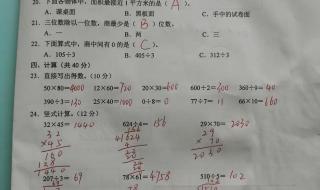 20. 下面各物体中,面积最接近1平方米的是( A )。
A. 课桌面 B. 黑板面 C. 手中的试卷面
21. 三位数除以一位数,商最少是( B )位数。
A. 一 B. 二 C. 三
22. 下面算式中,商中间有0的是( C )。
A. 105÷3 B. 405÷3 C. 312÷3
四、计算(共40分)
23. 直接写出得数。(10分)
50×80=4000 12×60=720 20×30=600 600÷2=300 360÷9=40
390÷3=130 25×40=1000 0÷8=0 77÷7=11 66×10=660
24. 竖式计算。(12分)
32×45=1440 624÷4=156 29×70=2030
32
×45
160
128
1440
29
× 70
2030
207÷3=69 78×61=4758 510÷5=102